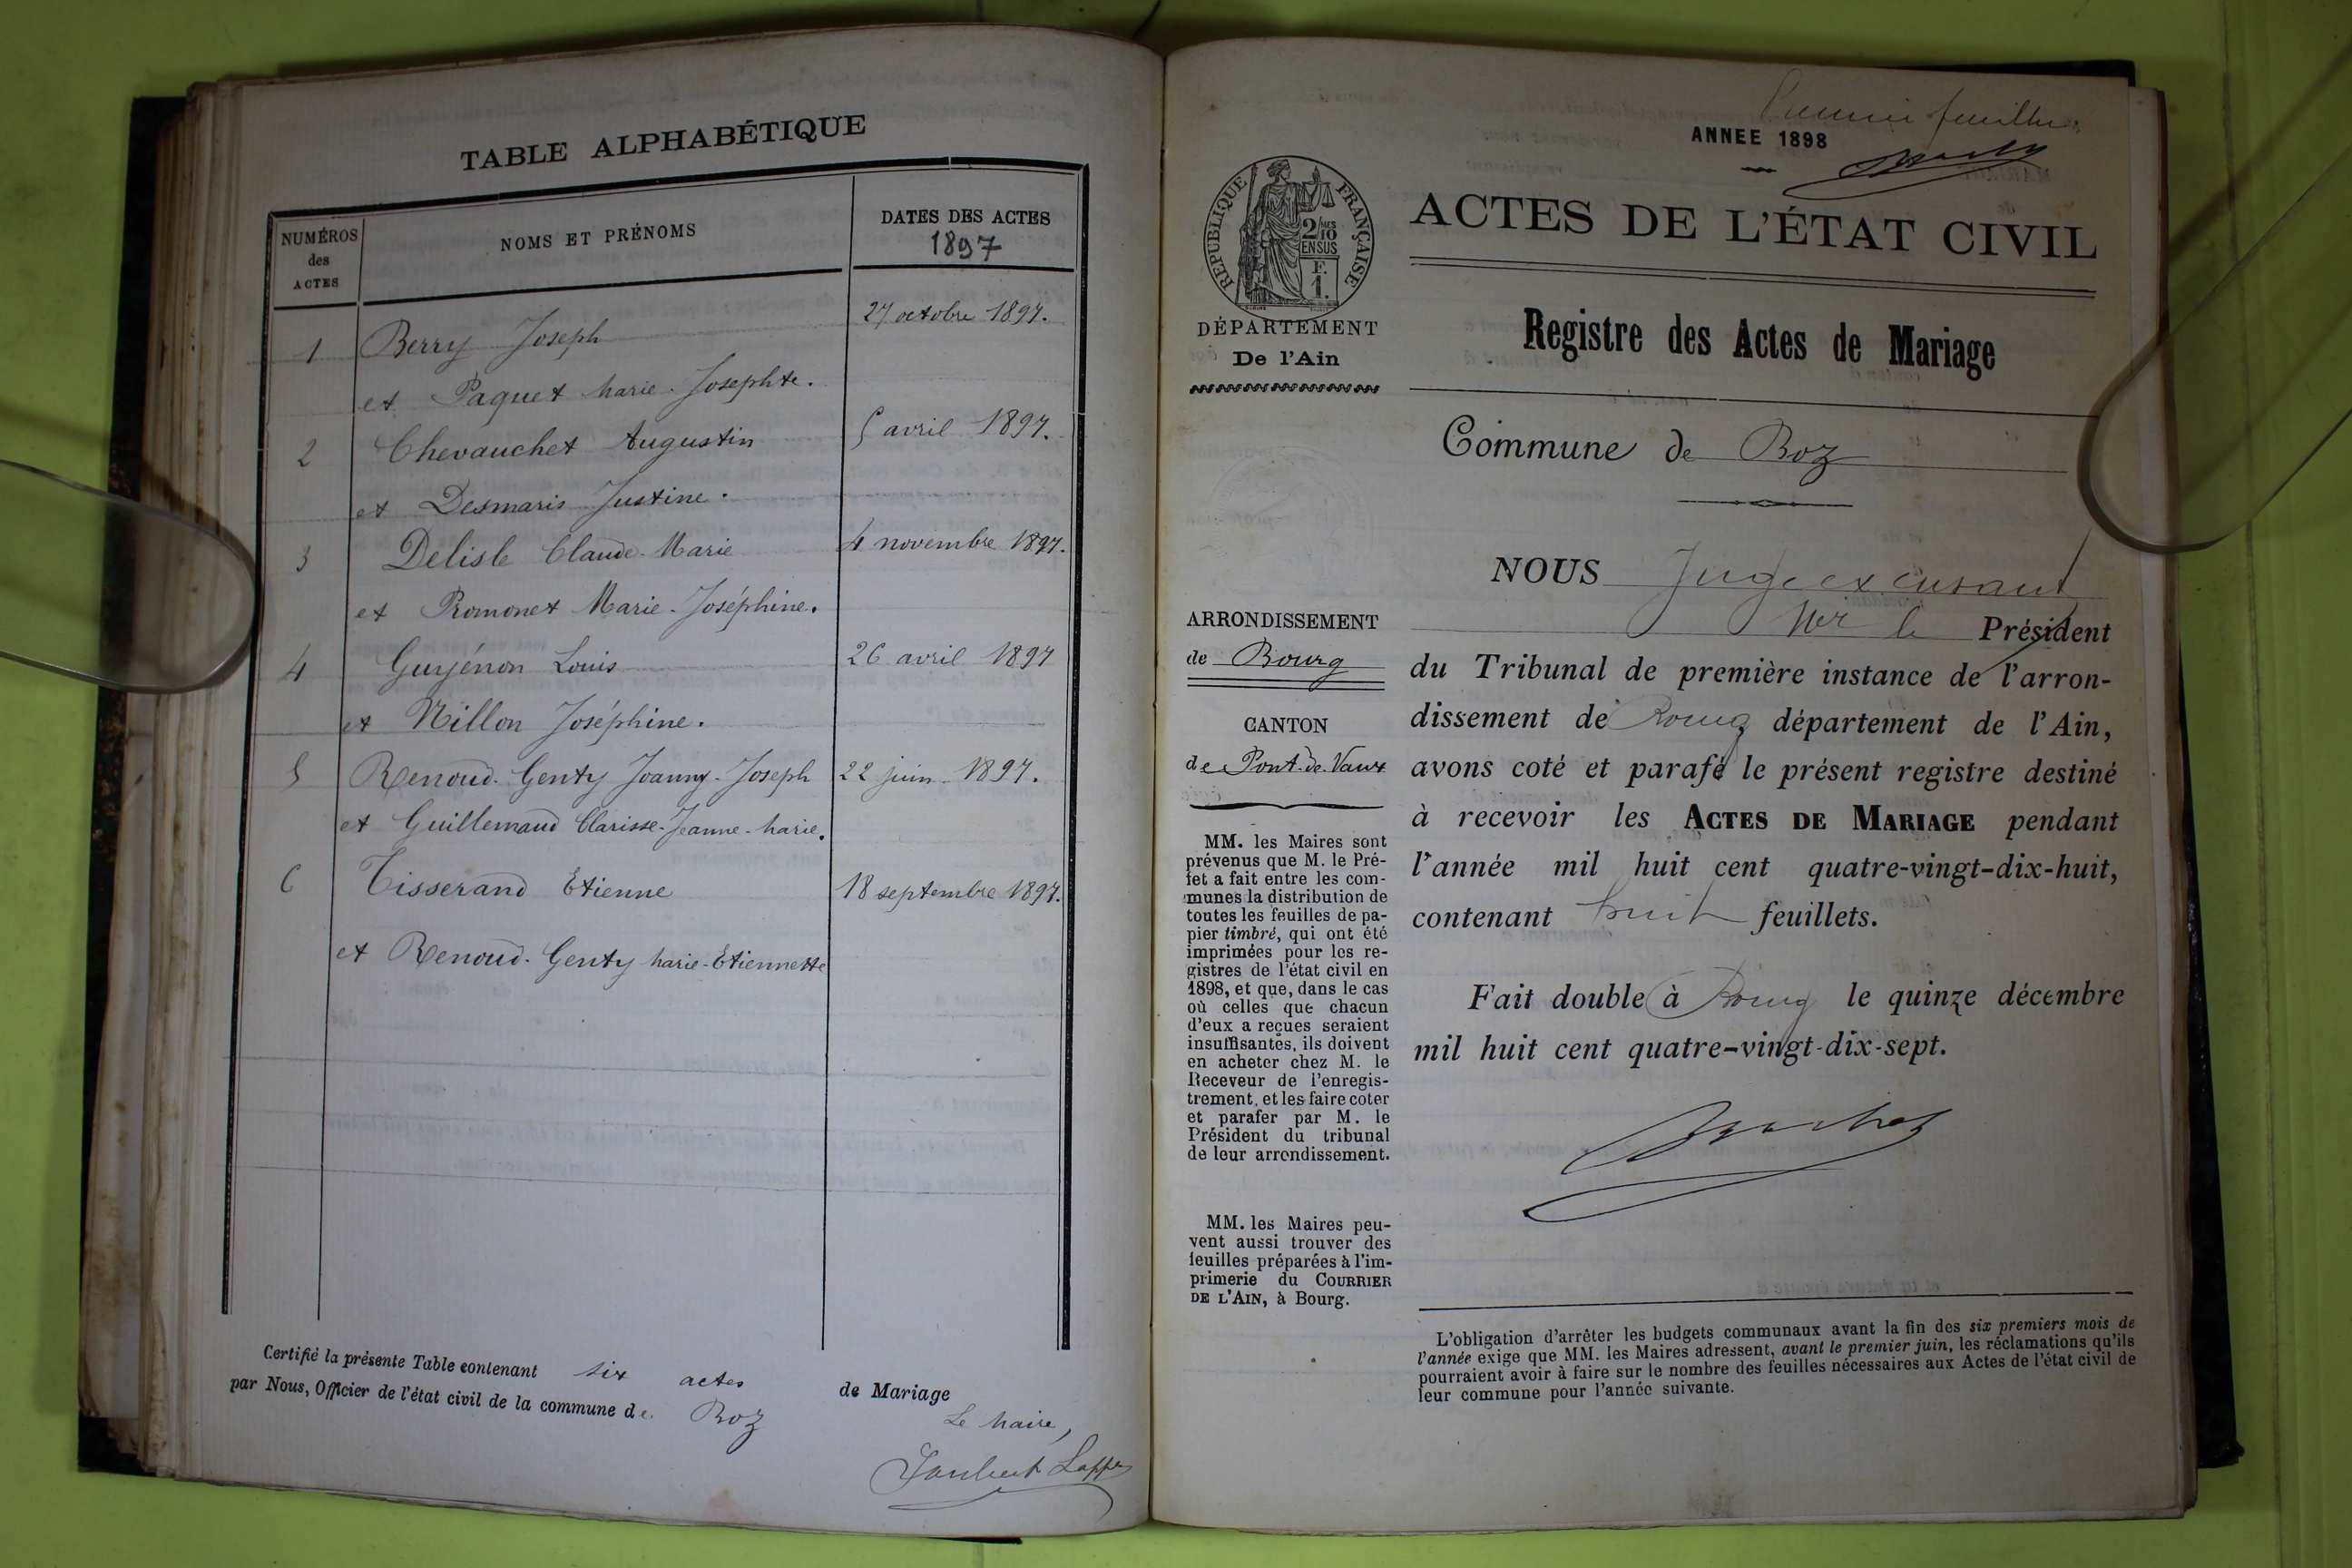 TABLE ALPHABÉTIQUE
NUMÉROS
des
ACTES
NOMS ET PRÉNOMS
DATES DES ACTES
1897
1 Berry Joseph 27 octobre 1897.
et Paquet Marie-Josephte.
2 Chevauchet Augustin 5 avril 1897.
et Desmaris Justine.
3 Delisle Claude-Marie 4 novembre 1897.
et Romonet Marie-Joséphine.
4 Guyénon Louis 26 avril 1897
et Nillon Joséphine.
5 Renoud-Genty Joanny-Joseph 22 juin 1897.
et Guillemaud Clarisse-Jeanne-Marie.
6 Tisserand Etienne 18 septembre 1897.
et Renoud-Genty Marie-Etiennette
Certifié la présente Table contenant six actes de Mariage
par Nous, Officier de l'état civil de la commune de Boz
Le Maire,
feuillet
ANNEE 1898
REPUBLIQUE FRANÇAISE
2/10MES
EN SUS
F.
1.
ACTES DE L'ÉTAT CIVIL
DÉPARTEMENT
De l'Ain
Registre des Actes de Mariage
Commune de Boz
ARRONDISSEMENT
de Bourg
CANTON
de Pont-de-Vaux
MM. les Maires sont
prévenus que M. le Pré-
fet a fait entre les com-
munes la distribution de
toutes les feuilles de pa-
pier timbré, qui ont été
imprimées pour les re-
gistres de l'état civil en
1898, et que, dans le cas
où celles que chacun
d'eux a reçues seraient
insuffisantes, ils doivent
en acheter chez M. le
Receveur de l'enregis-
trement, et les faire coter
et parafer par M. le
Président du tribunal
de leur arrondissement.
MM. les Maires peu-
vent aussi trouver des
feuilles préparées à l'im-
primerie du COURRIER
DE L'AIN, à Bourg.
NOUS Juge excusant
Mr le Président
du Tribunal de première instance de l'arron-
dissement de Bourg département de l'Ain,
avons coté et parafé le présent registre destiné
à recevoir les ACTES DE MARIAGE pendant
l'année mil huit cent quatre-vingt-dix-huit,
contenant huit feuillets.
Fait double à Bourg le quinze décembre
mil huit cent quatre-vingt-dix-sept.
L'obligation d'arrêter les budgets communaux avant la fin des six premiers mois de
l'année exige que MM. les Maires adressent, avant le premier juin, les réclamations qu'ils
pourraient avoir à faire sur le nombre des feuilles nécessaires aux Actes de l'état civil de
leur commune pour l'année suivante.